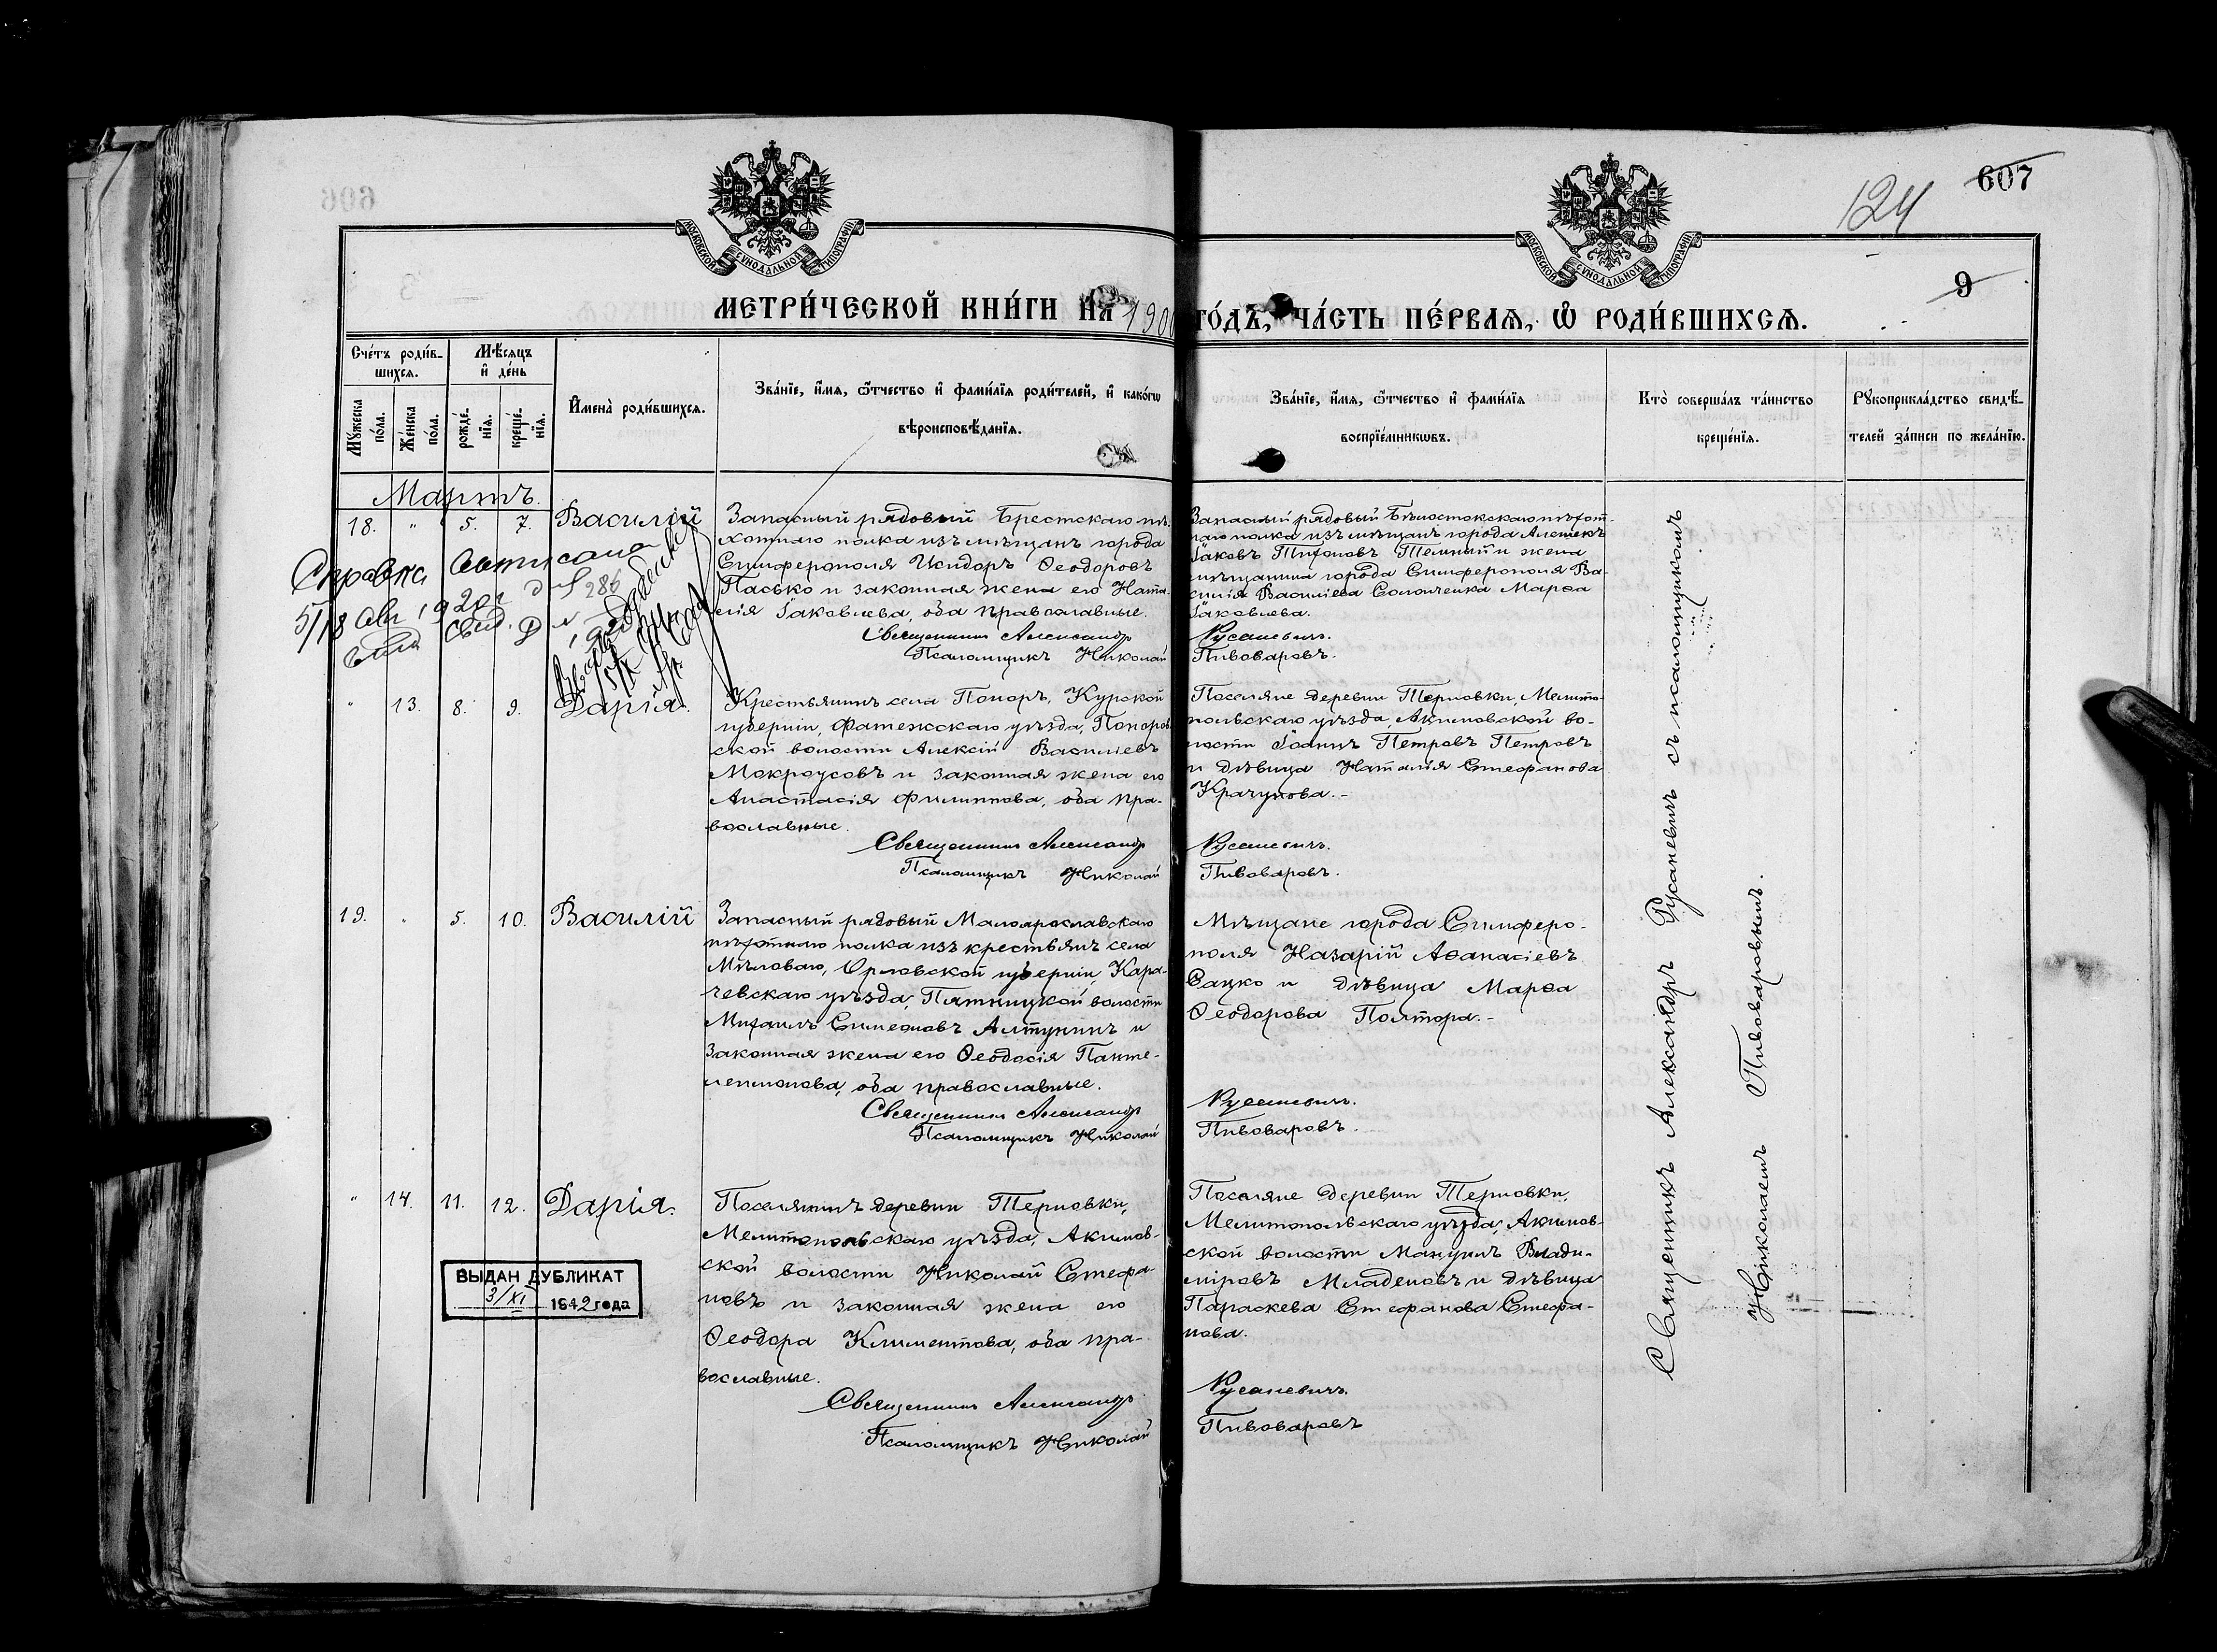 607
124
9
МОСКОВСКОЙ СѴНОДАЛЬНОЙ ТИПОГРАФІИ
МОСКОВСКОЙ СѴНОДАЛЬНОЙ ТИПОГРАФІИ
МЕТРИ́ЧЕСКОЙ КНИ́ГИ НА 190
ГО́ДЪ, ЧА́СТЬ ПЕ́РВАѦ, Ѡ РОДИ́ВШИХСѦ.
Сче́тъ роди́в-
шихсѧ.
Мѣ́сѧцъ
и҆ де́нь
Мꙋ́жеска
по́ла.
Же́нска
по́ла.
рожде́-
нїѧ.
креще́-
нїѧ.
И҆мена̀ роди́вшихсѧ.
Зва́нїе, и҆́мѧ, ѻ҆́тчество и҆ фами́лїѧ роди́телей, и҆ како́гѡ
вѣроисповѣ́данїѧ.
Зва́нїе, и҆́мѧ, ѻ҆́тчество и҆ фами́лїѧ
воспрїе́мникѡвъ.
Кто̀ соверша́лъ та́инство
креще́нїѧ.
Рꙋкоприкла́дство свидѣ́-
телей за́писи по жела́нїю.
Мартъ.
18. " 5. 7. Василій
Запасный рядовый Брестскаго пѣ-
хотнаго полка изъ мѣщанъ города
Симферополя Исидоръ Ѳеодоровъ
Пасько и законная жена его Ната-
лія Іаковлева, оба православные.
Священникъ Александръ
Псаломщикъ Николай
Запасный рядовый Бѣлостокскаго пѣхот-
наго полка изъ мѣщанъ города Алешекъ
Іаковъ Тихоновъ Темный и жена
мѣщанина города Симферополя Ва-
силія Василіева Солонченка Марѳа
Іаковлева.
Русаневичъ.
Пивоваровъ.
Справка
5/18 Авг 192
№ 286
" 13. 8. 9. Дарія.
Крестьянинъ села Попоръ, Курской
губерніи, Фатежскаго уѣзда, Попоров-
ской волости Алексій Василіевъ
Мокроусовъ и законная жена его
Анастасія Филиппова, оба пра-
вославные.
Священникъ Александръ
Псаломщикъ Николай
Поселяне деревни Терновки, Мелито-
польскаго уѣзда, Акимовской во-
лости Іоаннъ Петровъ Петровъ
и дѣвица Наталія Стефанова
Крачунова.-
Русаневичъ.
Пивоваровъ.
19. " 5. 10. Василій
Запасный рядовый Малоярославскаго
пѣхотнаго полка изъ крестьянъ села
Мѣловаго, Орловской губерніи, Кара-
чевскаго уѣзда, Пятницкой волости
Михаилъ Симеоновъ Алтунинъ и
законная жена его Ѳеодосія Панте-
леимонова, оба православные.
Священникъ Александръ
Псаломщикъ Николай
Мѣщане города Симферо-
поля Назарій Аѳанасіевъ
Сацко и дѣвица Марѳа
Ѳеодорова Полтора.-
Русаневичъ.
Пивоваровъ.
" 14. 11. 12. Дарія.
Поселянинъ деревни Терновки,
Мелитопольскаго уѣзда, Акимов-
ской волости Николай Стефа-
новъ и законная жена его
Ѳеодора Климентова, оба пра-
вославные.
Священникъ Александръ
Псаломщикъ Николай
Поселяне деревни Терновки,
Мелитопольскаго уѣзда, Акимов-
ской волости Мануилъ Влади-
міровъ Младеновъ и дѣвица
Параскева Стефанова Стефа-
нова.
Русаневичъ.
Пивоваровъ
ВЫДАН ДУБЛИКАТ
3/XI 1942 года
Священникъ Александръ Русаневичъ съ псаломщикомъ
Николаемъ Пивоваровымъ.